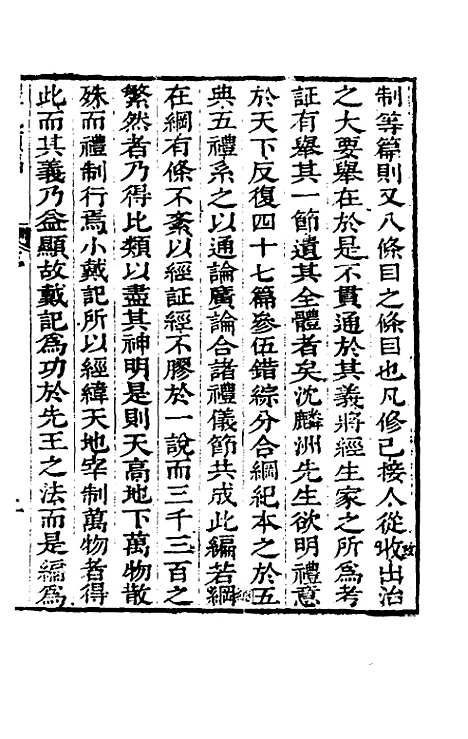 制等篇則又八條目之條目也凡修己接人從政出治
之大要舉在於是不貫通於其義將經生家之所為考
証有舉其一節遺其全體者矣沈麟洲先生欲明禮意
於天下反復四十七篇參伍錯綜分合綱紀本之於五
典五禮系之以通論廣論合諸禮儀節共成此編若網
在綱有條不紊以經証經不膠於一說而三千三百之
繁然者乃得比類以盡其神明是則天高地下萬物散
殊而禮制行焉小戴記所以經緯天地宰制萬物者得
此而其義乃益顯故戴記為功於先王之法而是編為